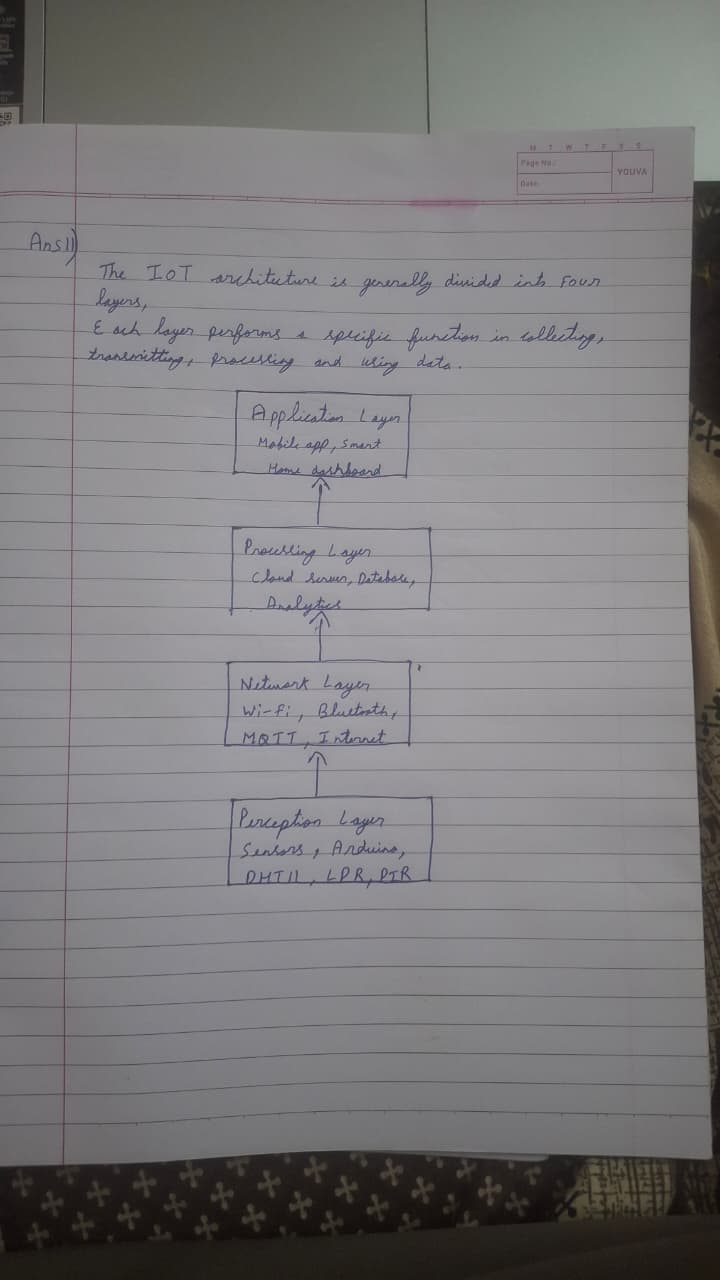 M T W T F S S
Page No.:
YOUVA
Date:
Ans 11)
The IOT architecture is generally divided into Four
layers,
Each layer performs a specific function in collecting,
transmitting, processing and using data.
Application Layer
Mobile app, Smart
Home dashboard
Processing Layer
Cloud Server, Database,
Analytics
Network Layer
Wi-Fi, Bluetooth,
MQTT, Internet
Perception Layer
Sensors, Arduino,
DHT11, LDR, PIR